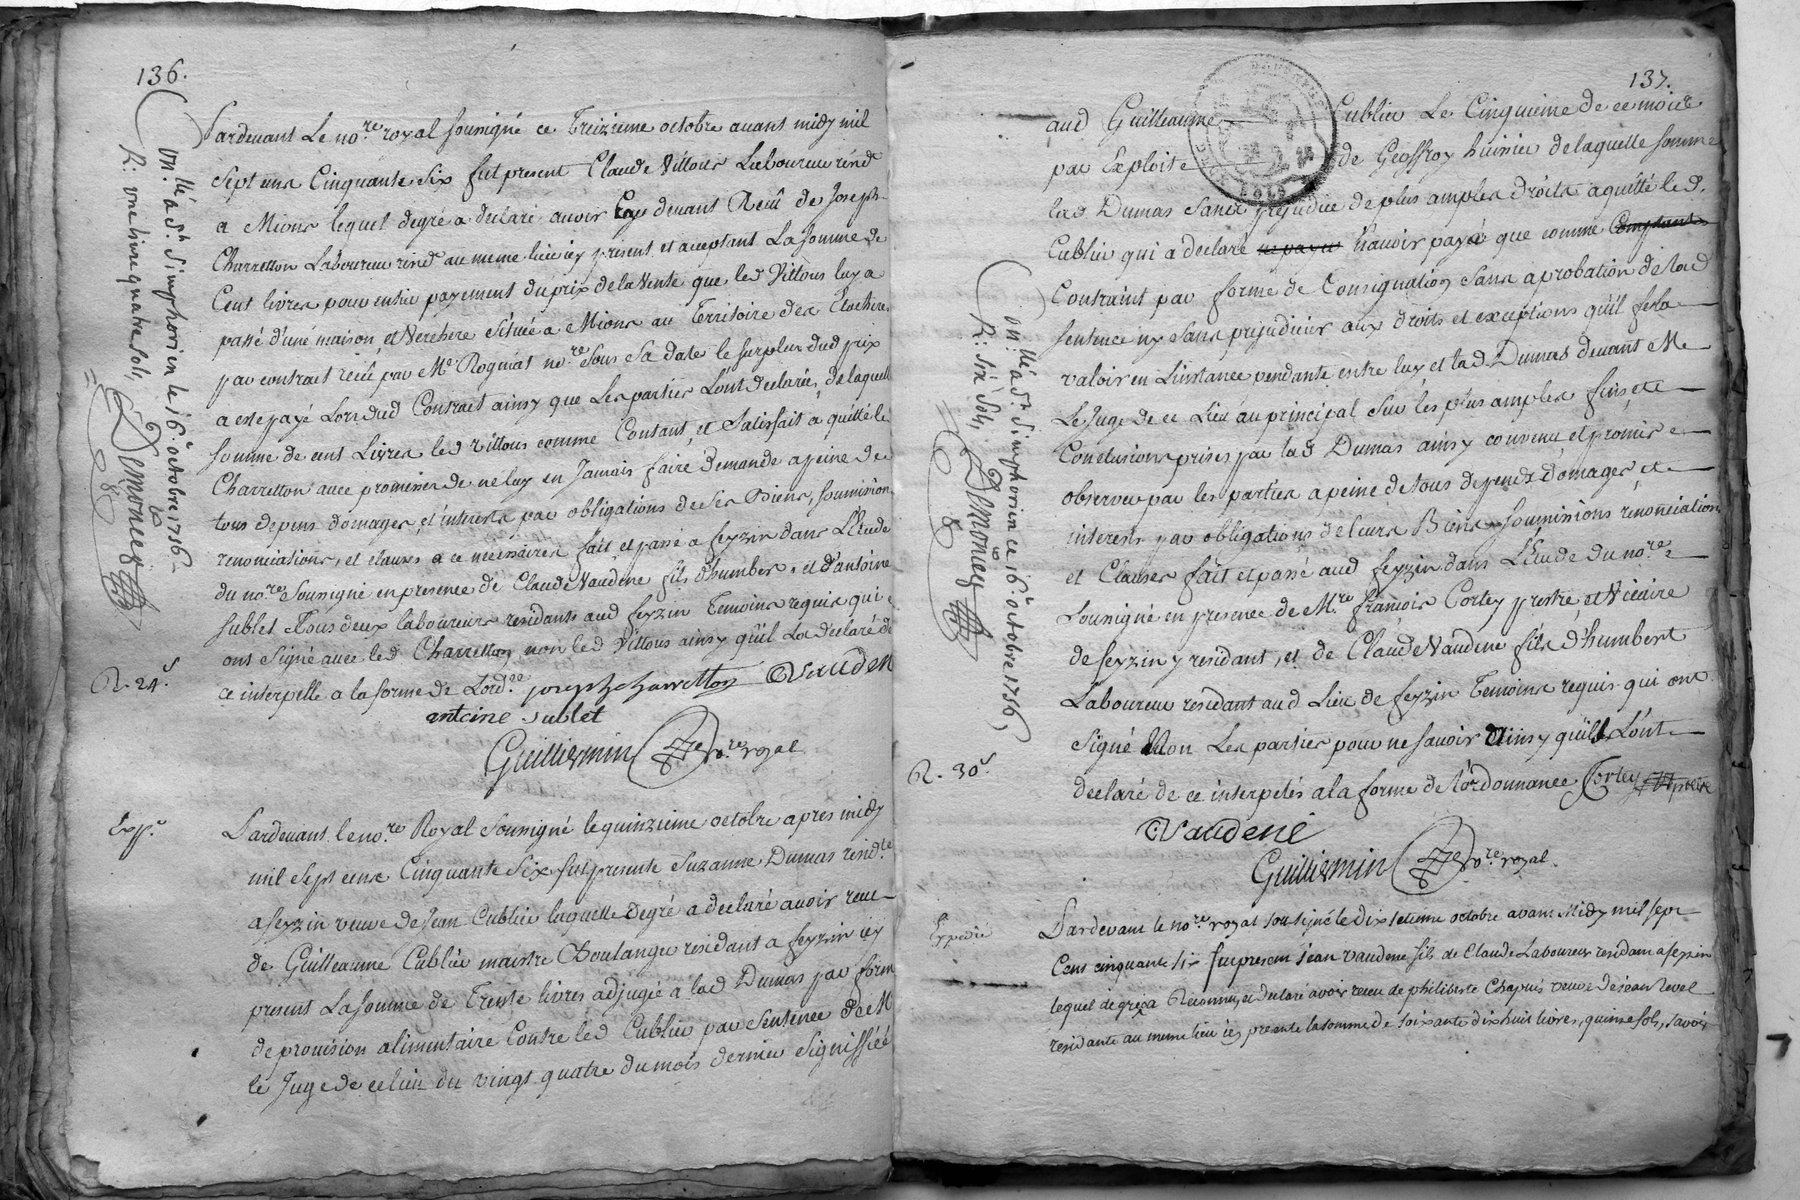 136.
Pardevant Le no.re royal sousigné ce Treizieme octobre avant midy mil
sept cens Cinquante six fut present Claude Vittous Laboureur résid.
a Mions lequel degré a declaré avoir cy devant Reçû de Joseph
Charretton Laboureur resid. au meme lieu icy present et aceptant La somme de
Cent livres pour entier payement du prix de la Vente que led Vittous luy a
passé d'uné maison et Verchere Située a Mions au Territoire des
par contrat reçû par Me Rogniat no.re sous sa date le surplus dud prix
a esté payé Lors dud Contract ainsy que Les parties L'ont declarés, de laquelle
somme de cent Livres led Vittous comme Contant et Satisfait a quitté le
Charretton avec promesses de ne luy en Jamais faire demande a peine de
tous depens domages, et interests par obligations de ses Biens, soumissions
renonciations, et clauses a ce necessaires fait et passé a feyzin dans L'Etude
du no.re Sousigné en presence de Claude Vaudene fils d'humbert, et d'antoine
sublet Tous deux laboureurs residants aud feyzin Temoins requis qui
ont signé avec led Charretton non led Vittous ainsy qu'il La declaré de
ce interpellé a la forme de Lord.ce josephcharretton Vauden
antoine sublet
Guilliermin no.re royal
on.llé a St Simphorien le 16.e octobre 1756
R: une livre quatre sols,
Demoncey
R. 24.s
Exp.
Pardevant le no.re Royal Sousigné le quinzieme octobre apres midy
mil sept cens Cinquante Six fut presente Suzanne Dumas resid.te
a feyzin veuve de Jean Cublier laquelle Degré a declaré avoir receu
de Guilleaume Cublier maistre Boulanger residant a feyzin icy
present La somme de Trente livres adjugée a lad Dumas par forme
de provision alimentaire Contre led Cublier par Sentence de M
le Juge de ce lieu du vingt quatre du mois dernier signiffiéé
137.
aud Guilleaume Cublier Le Cinquieme de ce mois
par Exploit de Geoffroy huissier de laquelle somme
lad Dumas Sans prejudice de plus amples droits a quitté led.
Cublier qui a declaré n'avoir payé que comme Comptant
Contraint par forme de Consignation Sans aprobation de lad
sentence ny Sans prejudicier aux droits et exceptions qu'il fera
valoir en L'instance pendante entre luy et lad Dumas devant M
Le Juge de ce Lieu au principal Sur les plus amples fins et
Conclusions prises par lad Dumas ainsy convenu et promis
observer par les parties a peine de tous depends domages, et
interests par obligations de leurs Biens soumissions renonciations
et Clauses fait et passé aud feyzin dans L'Etude du no.re
Sousigné en presence de M.re françois Cortey prestre et Vicaire
de feyzin y residant, et de Claude Vaudene fils d'humbert
Laboureur residant aud Lieu de feyzin Temoins requis qui ont
signé Non Les parties pour ne savoir Ainsy qu'ils L'ont
declaré de ce interpelés a la forme de L'ordonnance Cortey
Vaudené
Guilliermin no.re royal.
on.llé a St Simphorien ce 16.e octobre 1756,
R: six sols,
Demoncey
R. 30.s
Expedié
Pardevant le no.re royal sousigné le dix setieme octobre avant Midy mil sept
Cens cinquante six fut present Jean vaudene fils de Claude Laboureur residant a feyzin
lequel de gré a Reconnu, et declaré avoir receu de philiberte Chapuis veuve de jean Revel
residante au meme lieu icy presente la somme de soixante dix huit livres, quinse sols, savoir